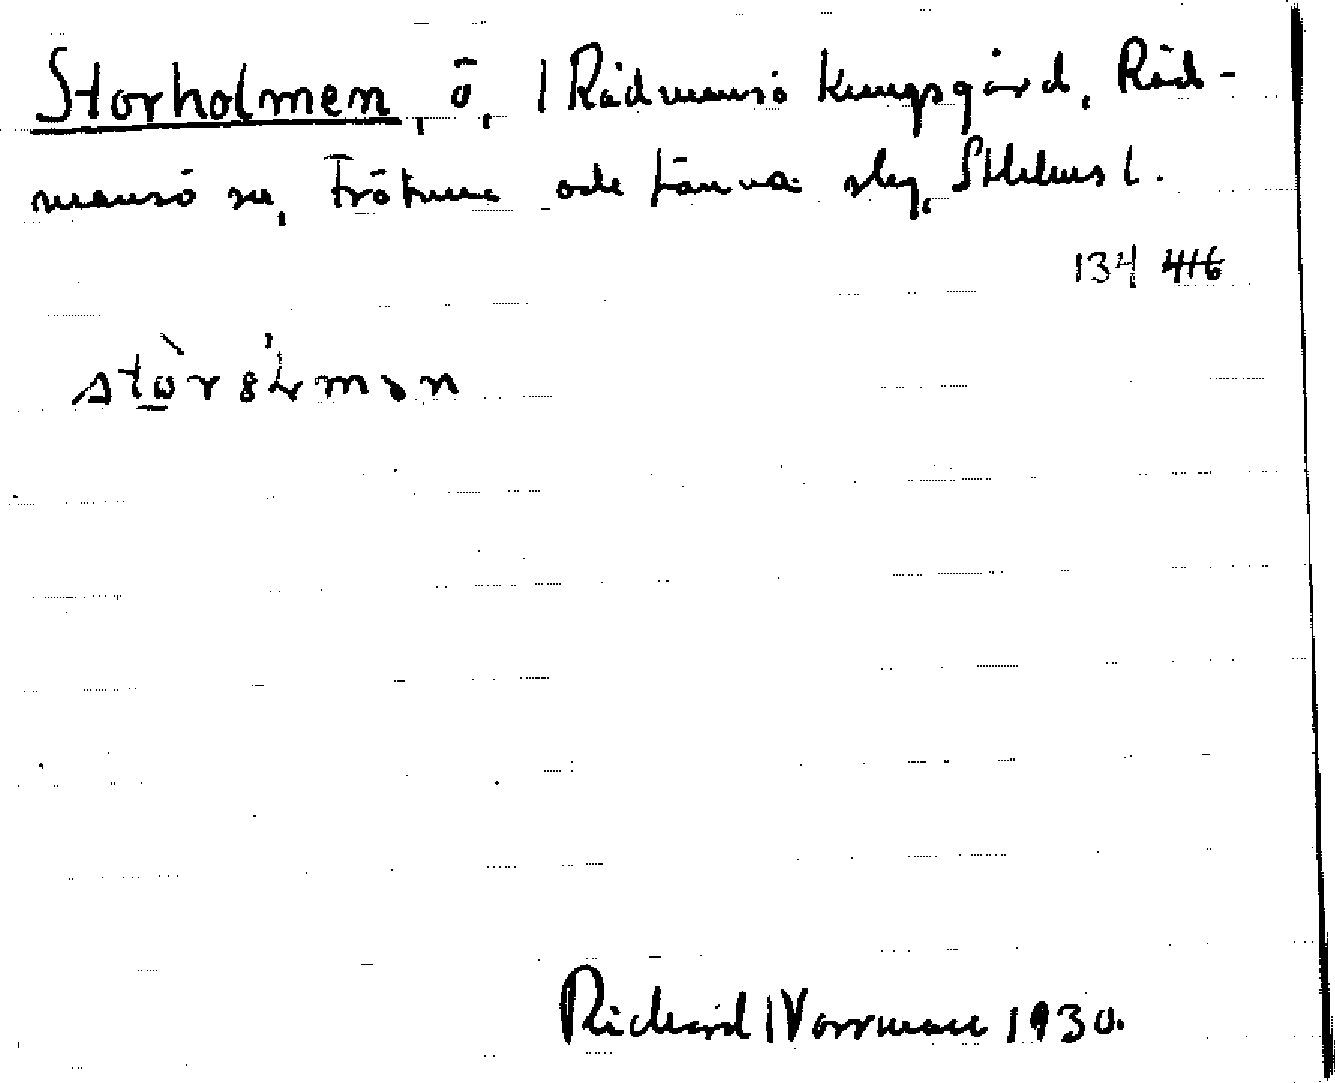 Storholmen, ö, 1 Rådmansö Kungsgård, Råd-
mansö sn, Frötuna och Länna slg, Sthlms l.
134 416
Richard Norrman 1930.